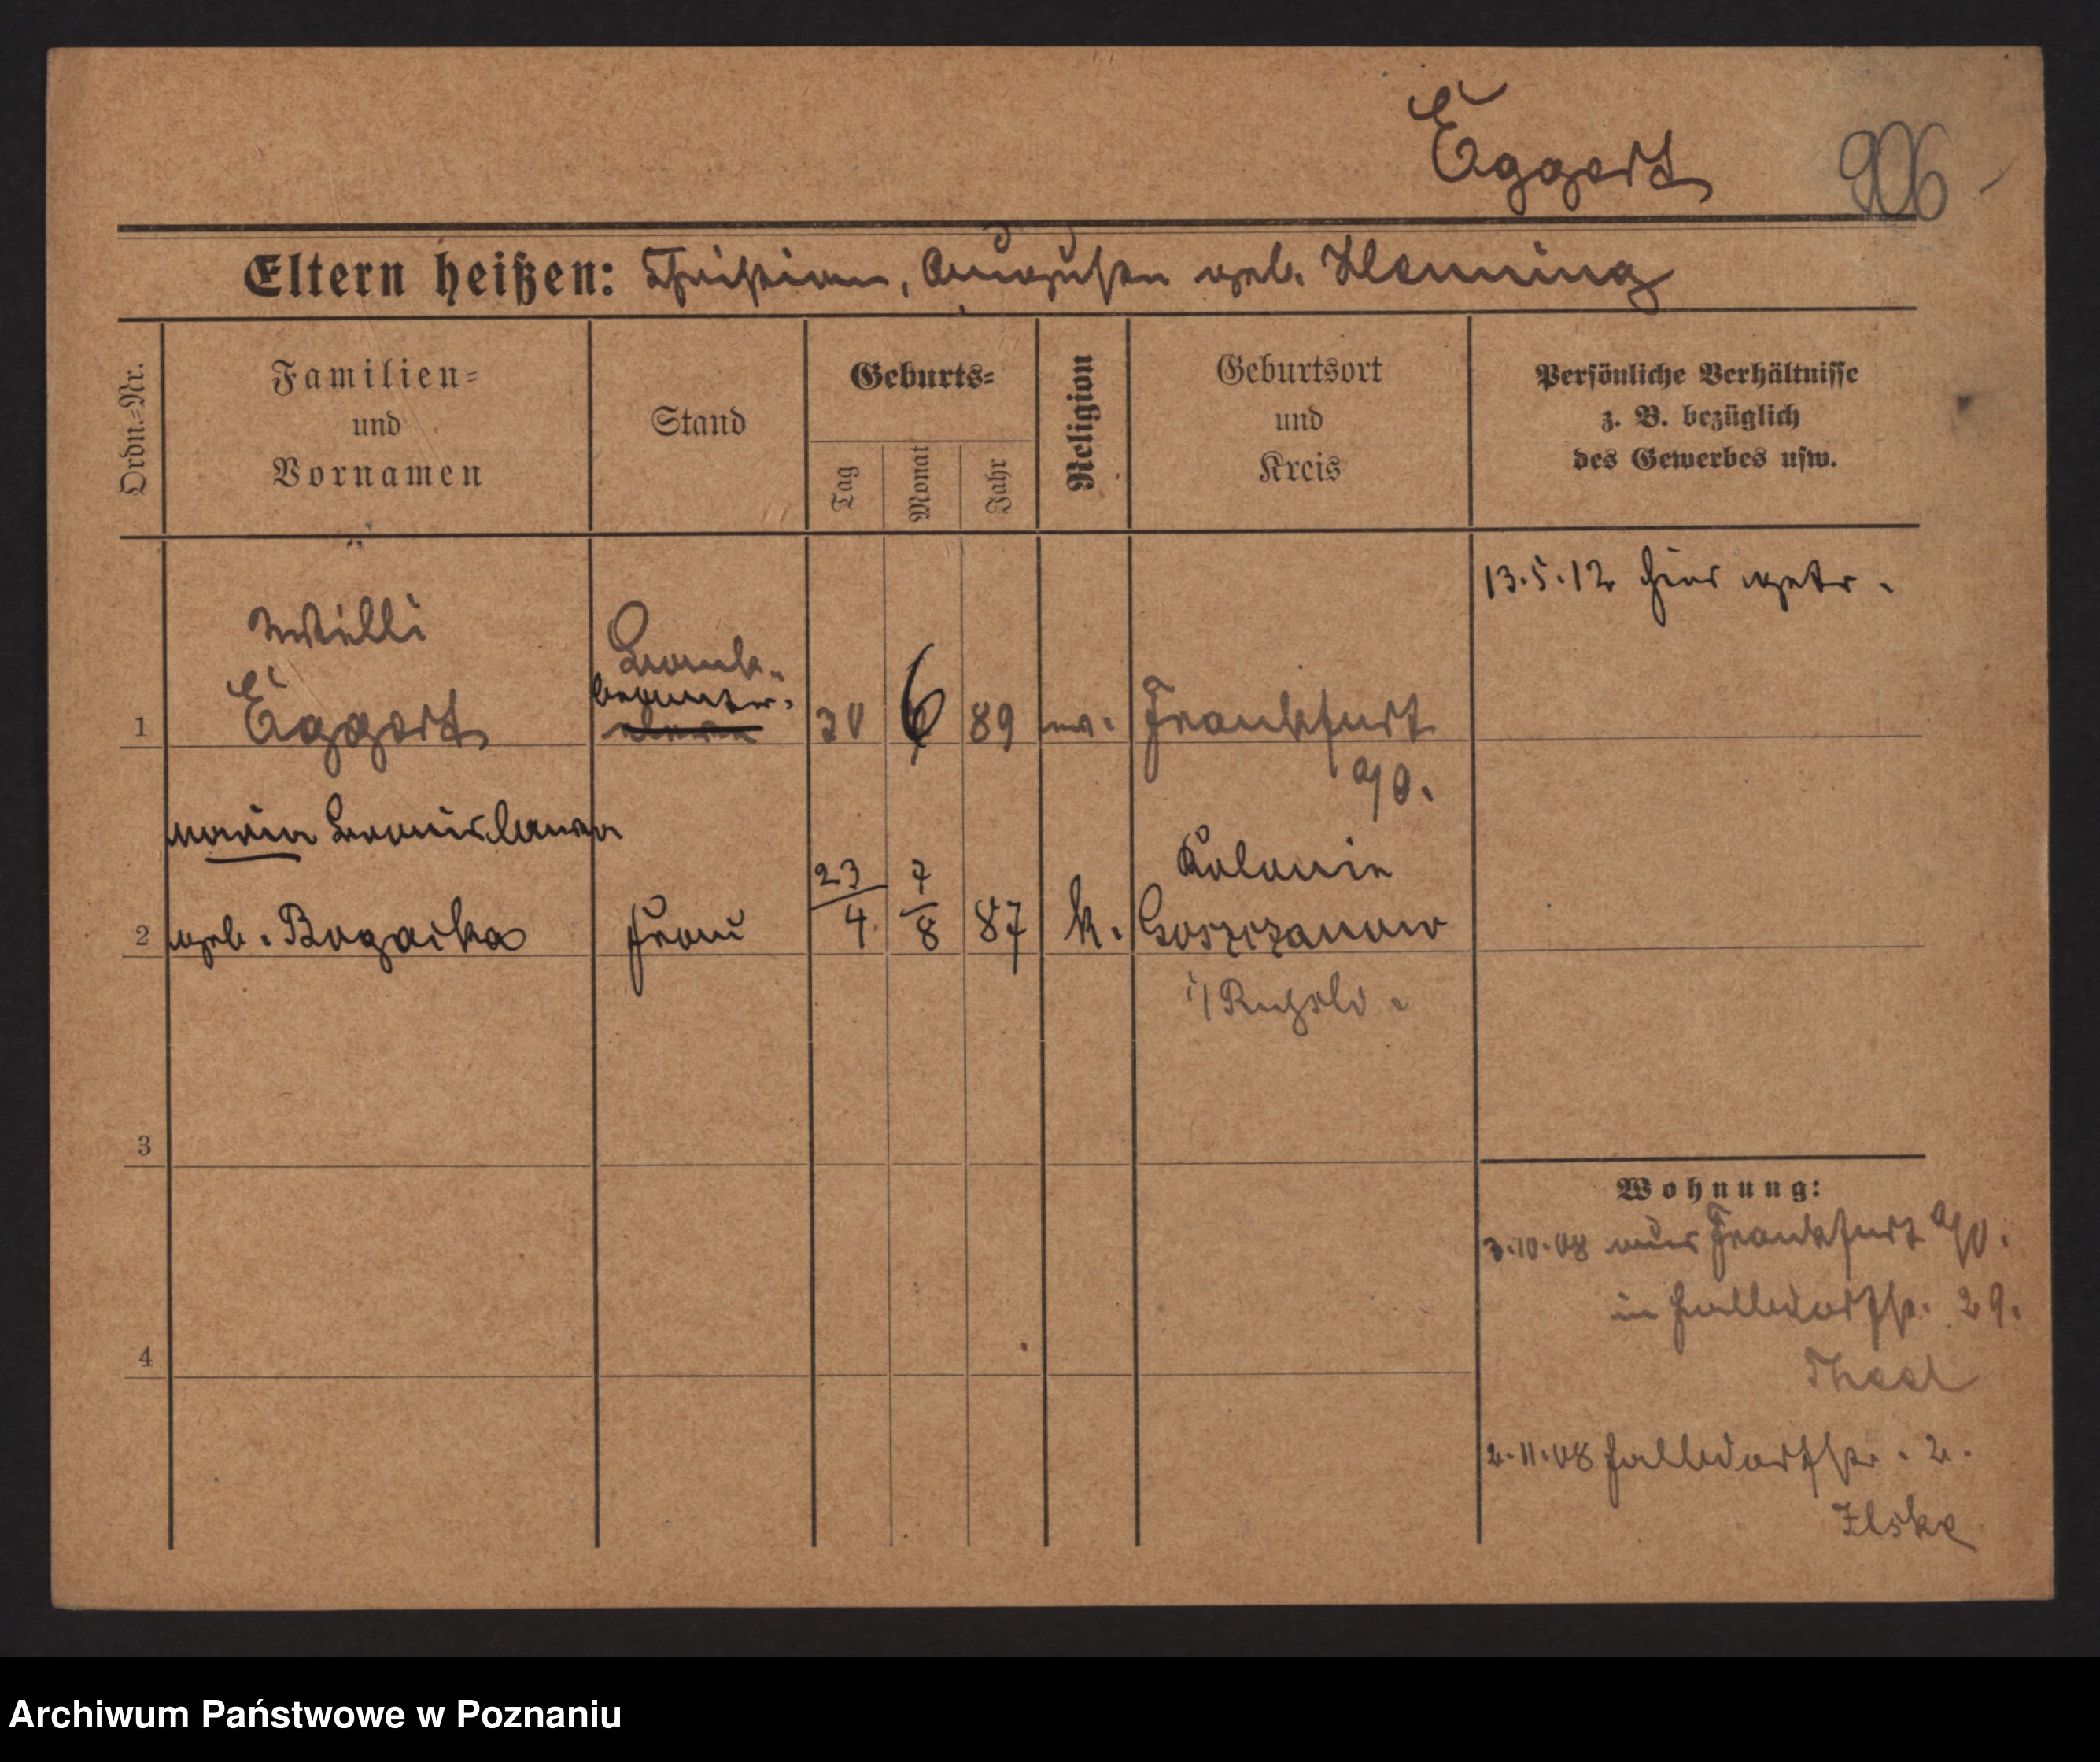 Eggert 906
Eltern heißen: Christian, Auguste geb. Henning
Ordn.-Nr.
Familien- und Vornamen
Stand
Geburts-
Tag
Monat
Jahr
Religion
Geburtsort und Kreis
Persönliche Verhältnisse z. B. bezüglich des Gewerbes usw.
13.5.12 hier getr.
Willi
Bank-
beamter.
1 Eggert 30 6 89 ev. Frankfurt
a/O.
Maria Bronislawa
Kolonie
23 7
2 geb. Bogacka Frau 4 8 87 k. Goszczanow
i/Rußld.
3
Wohnung:
3.10.08 aus Frankfurt a/O.
in Halldorfstr. 29.
4
2.11.08 Halldorfstr. 2.
Ilske
Archiwum Państwowe w Poznaniu